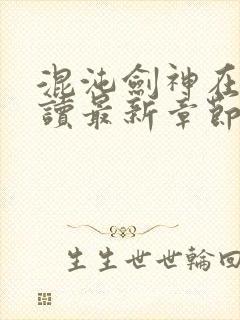 混沌劍神在
讀最新章節
生生世世輪回